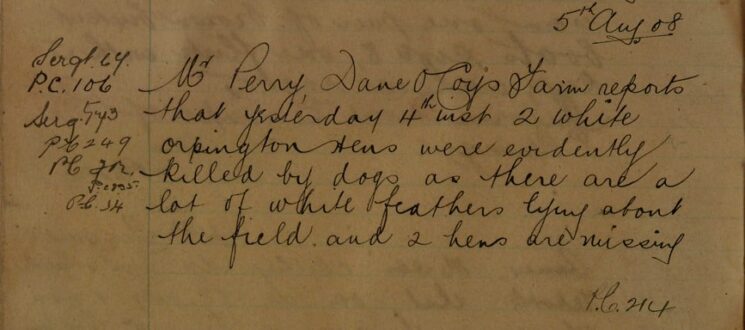 5th Aug 08
Sergt. 64.
P.C. 106
Sergt 573
PC 249
PC
P.C. 34
Mr Perry Dane O Coys Farm reports
that yesterday 4th inst 2 white
orpington Hens were evidently
killed by dogs as there are a
lot of white feathers lying about
the field. and 2 hens are missing
P.C. 214